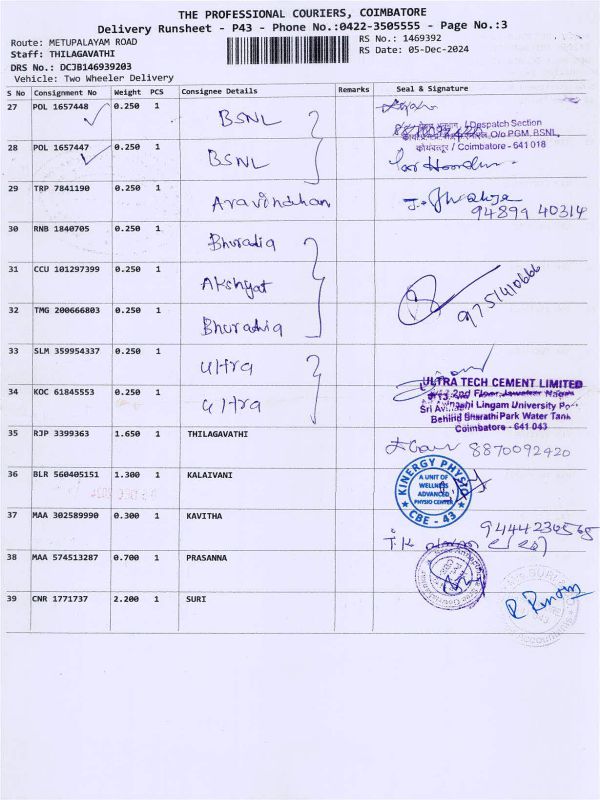 THE PROFESSIONAL COURIERS, COIMBATORE
Delivery Runsheet - P43 - Phone No.:0422-3505555 - Page No.:3
Route: METUPALAYAM ROAD
RS No.: 1469392
Staff: THILAGAVATHI
RS Date: 05-Dec-2024
DRS No.: DCJB146939203
Vehicle: Two Wheeler Delivery
S No Consignment No Weight PCS Consignee Details Remarks Seal & Signature
27 POL 1657448 0.250 1 BSNL
/ Despatch Section
O/o PGM, BSNL,
कोयंबत्तूर / Coimbatore - 641 018
28 POL 1657447 0.250 1 BSNL
29 TRP 7841190 0.250 1 Aravindhan
94899 40314
30 RNB 1840705 0.250 1 Bhuradia
31 CCU 101297399 0.250 1 Akshyat
9751410666
32 TMG 200666803 0.250 1 Bhuradia
33 SLM 359954337 0.250 1 Ultra
ULTRA TECH CEMENT LIMITED
2nd Floor,
34 KOC 61845553 0.250 1 Ultra
Lingam University
Behind Bharathi Park Water Tank
Coimbatore - 641 043
35 RJP 3399363 1.650 1 THILAGAVATHI
8870092420
36 BLR 560405151 1.300 1 KALAIVANI
KINERGY PHYSIO
A UNIT OF
WELLNESS
ADVANCED
PHYSIO CENTER
CBE - 43
37 MAA 302589990 0.300 1 KAVITHA
9444236565
T.K
38 MAA 574513287 0.700 1 PRASANNA
39 CNR 1771737 2.200 1 SURI